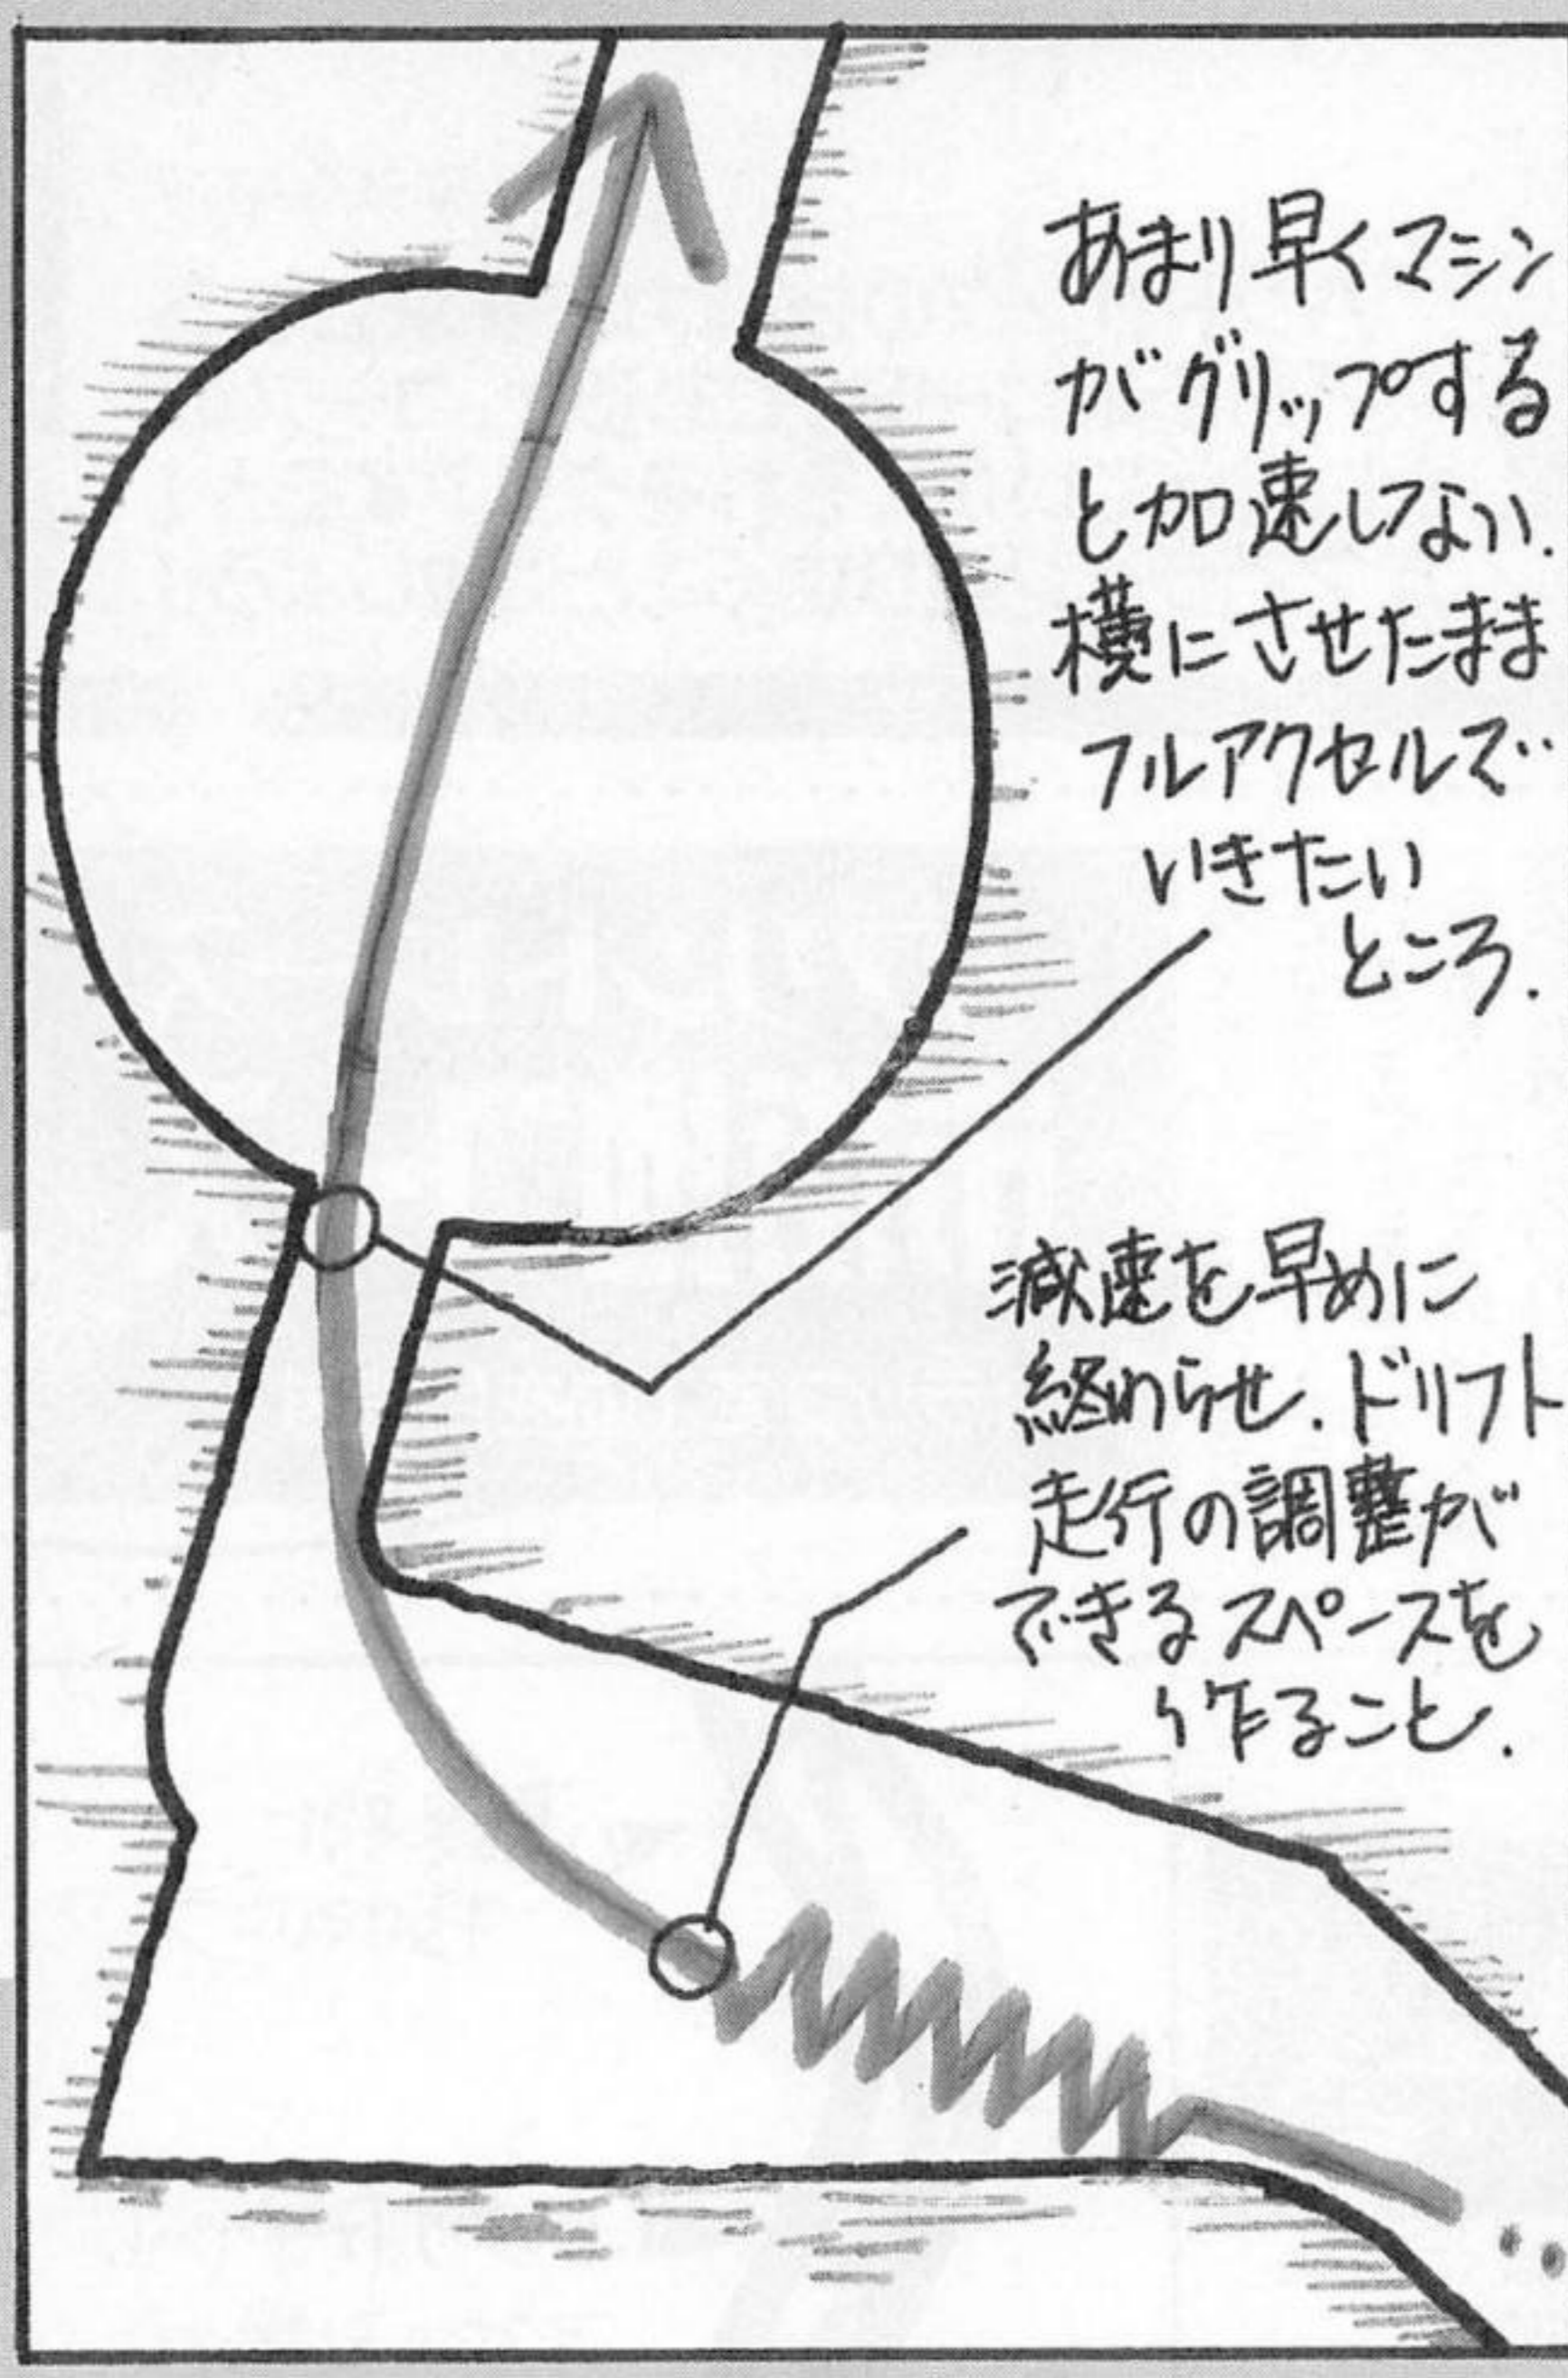 あまり早くマシン
がグリップする
と加速しない.
横にさせたまま
フルアクセルで
いきたい
ところ.
減速を早めに
終わらせ.ドリフト
走行の調整が
できるスペースを
作ること.